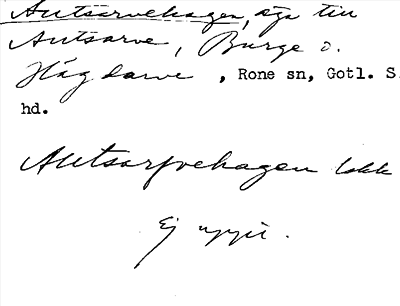 Autsarvehagen, äga till
Autsarve, Burge o.
Hägdarve, Rone sn, Gotl. S.
hd.
Autsarfvehagen lokk
Ej uppt.